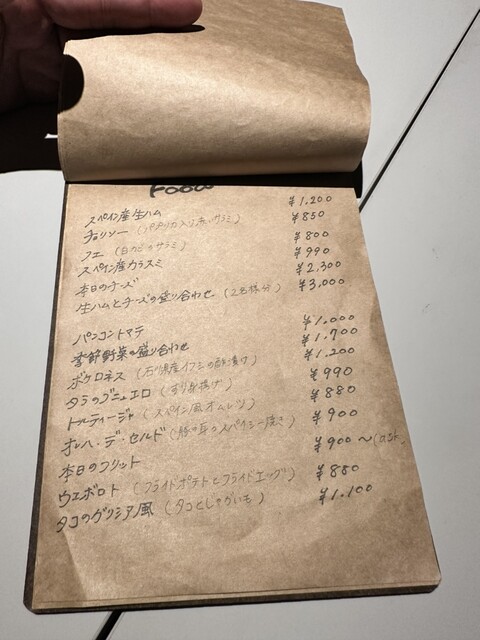 FOOD
スペイン産生ハム ¥1.200
チョリソー(パプリカ入り赤いサラミ) ¥850
フエ(白カビのサラミ) ¥800
スペイン産カラスミ ¥990
本日のチーズ ¥2,300
生ハムとチーズの盛り合わせ(2名様分) ¥3,000
パンコントマテ ¥1.000
季節野菜の盛り合わせ ¥1.700
ボケロネス(石川県産イワシの酢漬け) ¥1.200
タラのブニュエロ(すり身揚げ) ¥990
トルティージャ(スペイン風オムレツ) ¥880
オレハ・デ・セルド(豚の耳のスパイシー焼き) ¥900
本日のフリット ¥900〜
ウエボロト(フライドポテトとフライドエッグ) ¥880
タコのガリシア風(タコとじゃがいも) ¥1.100